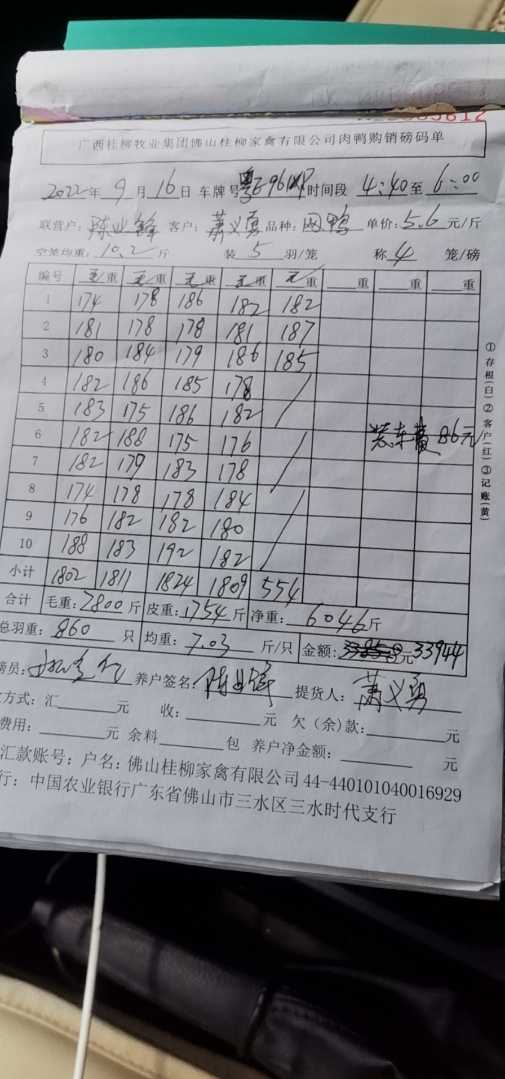 广西桂柳牧业集团佛山桂柳家禽有限公司肉鸭购销磅码单
2022年 9 月 16 日 车牌号 时间段 4:40 至 6:00
联营户: 陈业锋 客户: 萧义勇 品种: 肉鸭 单价: 5.6 元/斤
空笼均重: 10.2 斤 装 5 羽/笼 称 4 笼/磅
编号 毛/重 毛/重 毛/重 毛/重 毛/重 重 重 重
1 174 178 186 182 182
2 181 178 178 181 187
3 180 184 179 186 185
4 182 186 185 178
5 183 175 186 182
6 182 188 175 176 装车费 86元
7 182 179 183 178
8 174 178 178 184
9 176 182 182 180
10 188 183 192 182
小计 1802 1811 1824 1809 554
合计 毛重: 7800 斤 皮重: 1754 斤 净重: 6046 斤
总羽重: 860 只 均重: 7.03 斤/只 金额: 元 33944
磅员: 养户签名: 陈业锋 提货人: 萧义勇
方式: 汇 元 收: 元 欠(余)款: 元
费用: 元 余料 包 养户净金额: 元
汇款账号: 户名: 佛山桂柳家禽有限公司 44-440101040016929
行: 中国农业银行广东省佛山市三水区三水时代支行
①存根(白)②客户(红)③记账(黄)